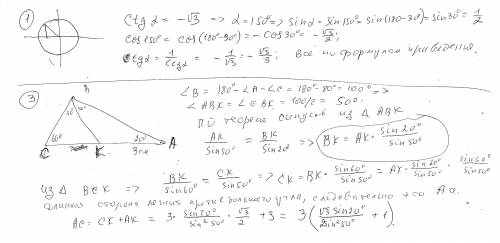 1
Ctg α = -√3 => α = 150° => sin α = sin 150° = sin(180-30°) = sin 30° = 1/2
cos 150° = cos(180°-30°) = -cos 30° = -√3/2;
tg α = 1/ctg α = -1/√3 = -√3/3; Все по формулам приведения.
3
B
50° 50°
60° 20°
C K 3см A
∠B = 180°-∠A-∠C = 180°-80° = 100° =>
∠ABK = ∠CBK = 100/2 = 50°.
По теореме синусов из △ABK
AK/sin50° = BK/sin20° => BK = AK · sin20°/sin50°
Из △BCK => BK/sin60° = CK/sin50° => CK = BK ·
сторона лежит против большего угла, следовательно это AC.
AC = CK + AK = 3 · sin20°/sin²50° · √3/2 + 3 = 3(√3 sin20°/2sin²50° + 1).